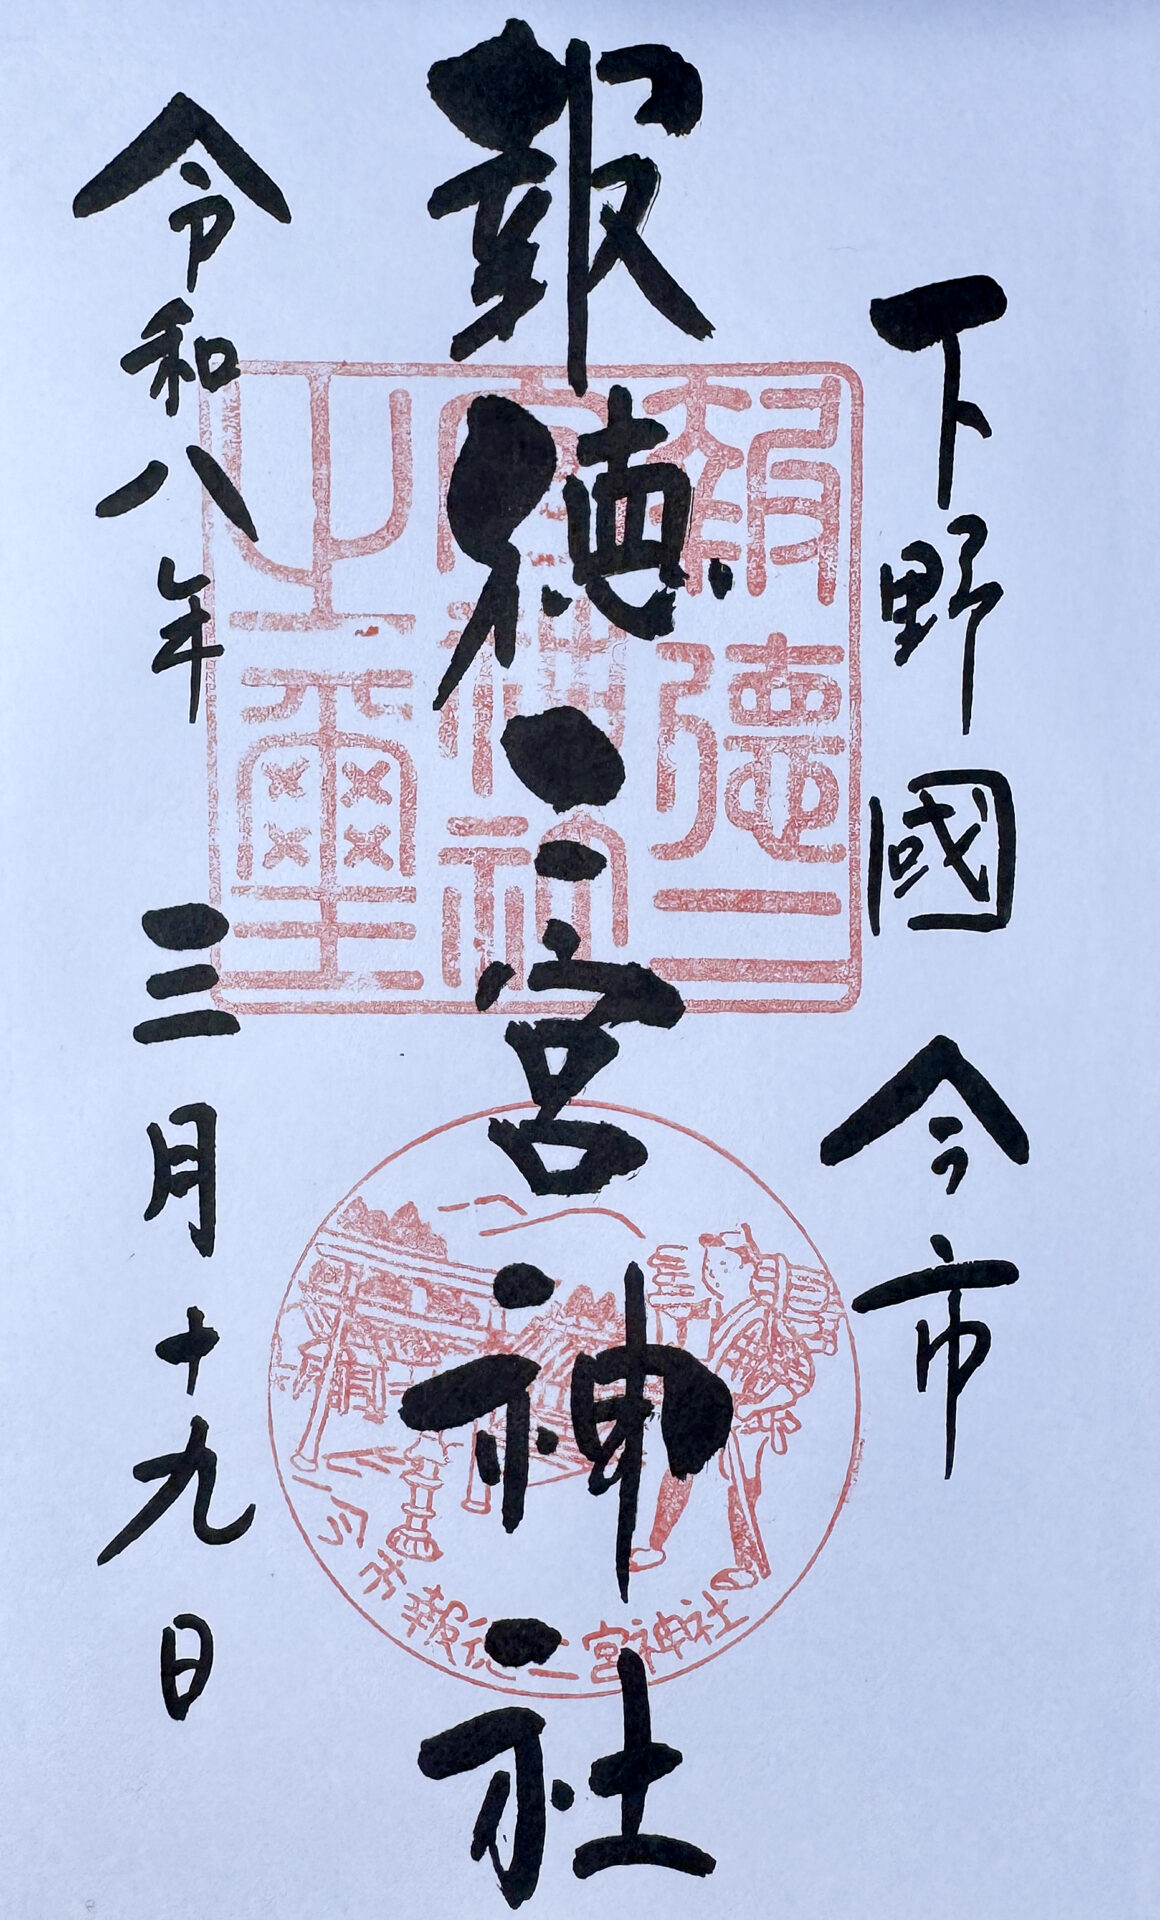 下野國今市
報徳二宮神社
令和八年三月十九日
報徳二
宮神社
之璽
今市報徳二宮神社